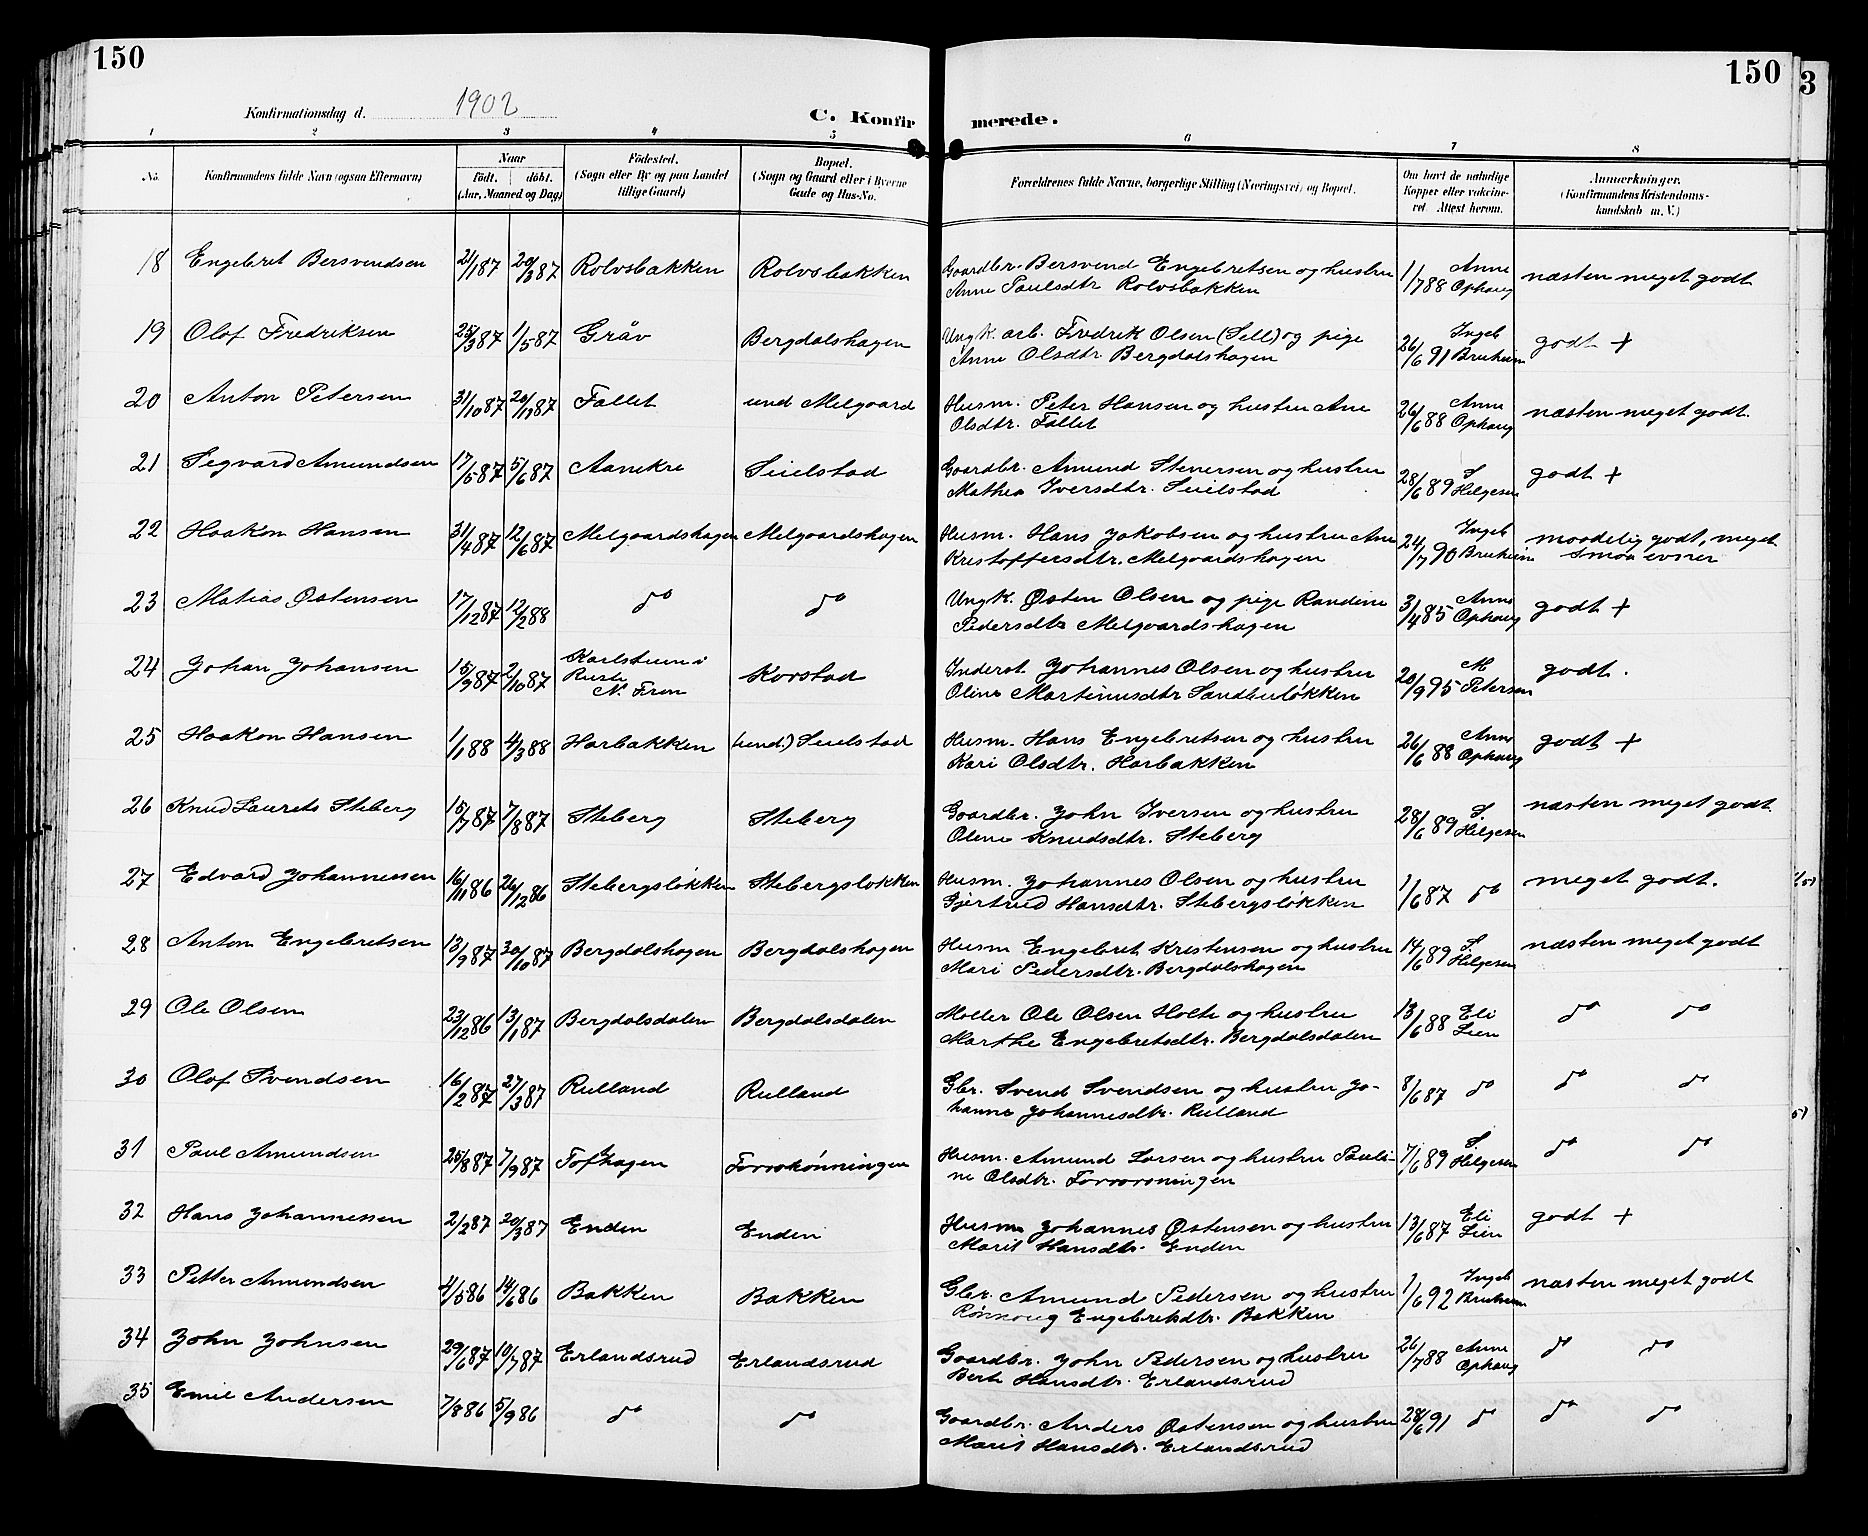 150
150
3
Konfirmationsdag d. 1902
C. Konfirmerede.
1 2 3 4 5 6 7 8
No.
Konfirmandens fulde Navn (ogsaa Efternavn)
Naar
födt. döbt.
(Aar, Maaned og Dag)
Födested.
(Sogn eller By og paa Landet
tillige Gaard)
Bopæl.
(Sogn og Gaard eller i Byerne
Gade og Hus-No.
Forældrenes fulde Navne, borgerlige Stilling (Næringsvei) og Bopæl.
Om havt de naturlige
Kopper eller vakcine-
ret Attest herom.
Anmærkninger.
(Konfirmandens Kristendoms-
kundskab m. V.)
18 Engebret Bersvendsen 21/1 87 20/3 87 Rolvsbakken Rolvsbakken Gaardbr. Bersvend Engebretsen og hustru
Anne Paulsdtr Rolvsbakken 1/7 88 Anne Ophaug næsten meget godt
19 Olof Fredriksen 25/3 87 1/5 87 Gråv Bergdalshagen Ungk. arb. Fredrik Olsen (Sell) og pige
Anne Olsdtr Bergdalshagen 26/6 91 Ingeb Bruheim godt +
20 Anton Petersen 31/10 87 20/11 87 Fallet und Melgaard Husm. Peter Hansen og hustru Ane
Olsdtr. Fallet 26/6 88 Anne Ophaug næsten meget godt.
21 Segvard Amundsen 17/5 87 5/6 87 Aanekre Seielstad Gaardbr. Amund Stenersen og hustru
Mathea Iversdtr. Seielstad 28/6 89 S Helgesen godt +
22 Haakon Hansen 31/4 87 12/6 87 Melgaardshagen Melgaardshagen Husm. Hans Jakobsen og hustru Ane
Kristoffersdtr. Melgaardshagen 24/7 90 Ingeb Bruheim maadelig godt, meget
smaa evner
23 Matias Østensen 17/12 87 12/2 88 do do Ungk. Østen Olsen og pige Randine
Pedersdtr Melgaardshagen 3/4 85 Anne Ophaug godt +
24 Johan Johansen 15/9 87 2/10 87 Karlstuen i
Ruste
N. Fron Korstad Inderst Johannes Olsen og hustru
Oline Martinusdtr Sandbuløkken 20/9 95 M Petersen godt.
25 Haakon Hansen 1/1 88 4/3 88 Harbakken (und.) Seielstad Husm. Hans Engebretsen og hustru
Kari Olsdtr. Harbakken 26/6 88 Anne Ophaug godt +
26 Knud Laurets Steberg 15/7 87 7/8 87 Steberg Steberg Gaardbr. John Iversen og hustru
Oline Knudsdtr. Steberg 28/6 89 S. Helgesen næsten meget godt
27 Edvard Johannessen 16/11 86 26/12 86 Stebergsløkken Stebergsløkken Husm. Johannes Olsen og hustru
Gjertrud Hansdtr. Stebergsløkken 1/6 87 do meget godt.
28 Anton Engebretsen 13/9 87 30/10 87 Bergdalshagen Bergdalshagen Husm Engebret Kristensen og hustru
Mari Pedersdtr. Bergdalshagen 14/6 89 S. Helgesen næsten meget godt
29 Ole Olsen 23/12 86 13/1 87 Bergdalsdalen Bergdalsdalen Møller Ole Olsen Holte og hustru
Marthe Engebretsdtr. Bergdalsdalen 13/6 88 Eli Lien do do
30 Olof Svendsen 16/2 87 27/3 87 Rulland Rulland Gbr. Svend Svendsen og hustru Jo-
hanne Johannesdtr. Rulland 8/6 87 do do do
31 Paul Amundsen 25/8 87 7/9 87 Tofthagen Forvskønningen Husm. Amund Larsen og hustru Pauli-
ne Olsdtr. 7/6 89 S Helgesen do do
32 Hans Johannessen 2/2 87 20/3 87 Enden Enden Husm Johannes Østensen og hustru
Marit Hansdtr. Enden 13/6 87 Eli Lien godt +
33 Petter Amundsen 4/5 86 14/6 86 Bakken Bakken Gbr. Amund Pedersen og hustru
Rønnaug Engebretsdtr. Bakken 1/6 92 Ingeb Bruheim næsten meget godt
34 John Johnsen 29/6 87 10/7 87 Erlandsrud Erlandsrud Gaardbr. John Pedersen og hustru
Berte Hansdtr. Erlandsrud 26/7 88 Anne Ophaug do do
35 Emil Andersen 7/8 86 5/9 86 do do Gaardbr. Anders Østensen og hustru
Marit Hansdtr. Erlandsrud 28/6 91 do do do